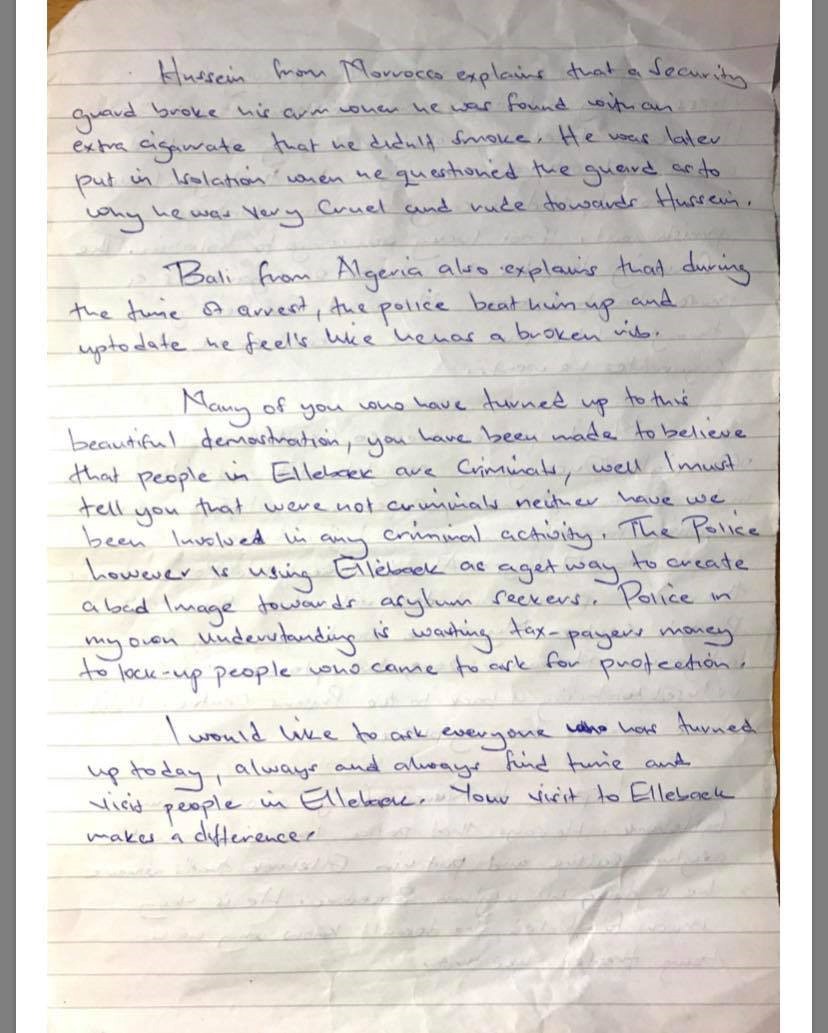 Hussein from Morrocco explains that a Security
guard broke his arm when he was found with an
extra cigarrate that he didn't smoke. He was later
put in Isolation when he questioned the guard as to
why he was very Cruel and rude towards Hussein.
Bali from Algeria also explains that during
the time of arrest, the police beat him up and
upto date he feel's like he has a broken rib.
Many of you who have turned up to this
beautiful demostration, you have been made to believe
that people in Ellebaek are Criminals, well I must
tell you that were not criminals neither have we
been Involved in any criminal activity. The Police
however is using Ellebaek as a get way to create
a bad Image towards asylum seekers. Police in
my own understanding is wasting tax-payers money
to lock-up people who came to ask for protection.
I would like to ask everyone who has turned
up today, always and always find time and
visit people in Ellebaek. Your visit to Ellebaek
makes a difference.